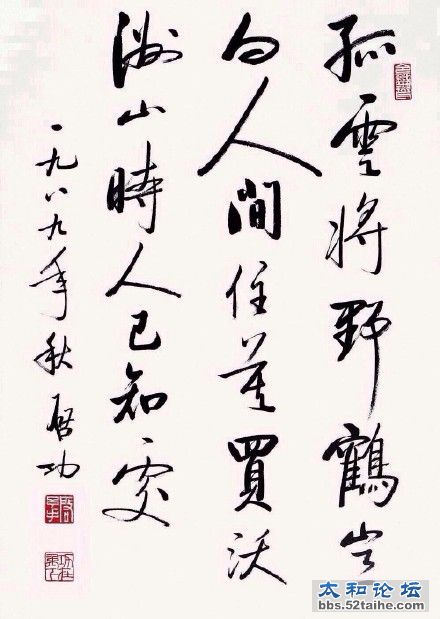 孤雲將野鶴豈
向人間住莫買沃
洲山時人已知處
一九八九年秋 啟功
太和论坛
bbs.52taihe.com